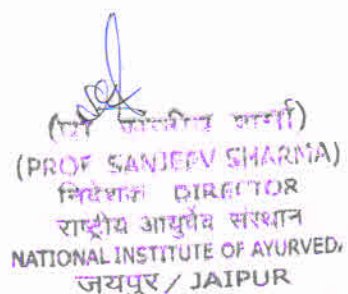 (प्रो संजीव शर्मा)
(PROF SANJEEV SHARMA)
निदेशक DIRECTOR
राष्ट्रीय आयुर्वेद संस्थान
NATIONAL INSTITUTE OF AYURVED
जयपुर / JAIPUR